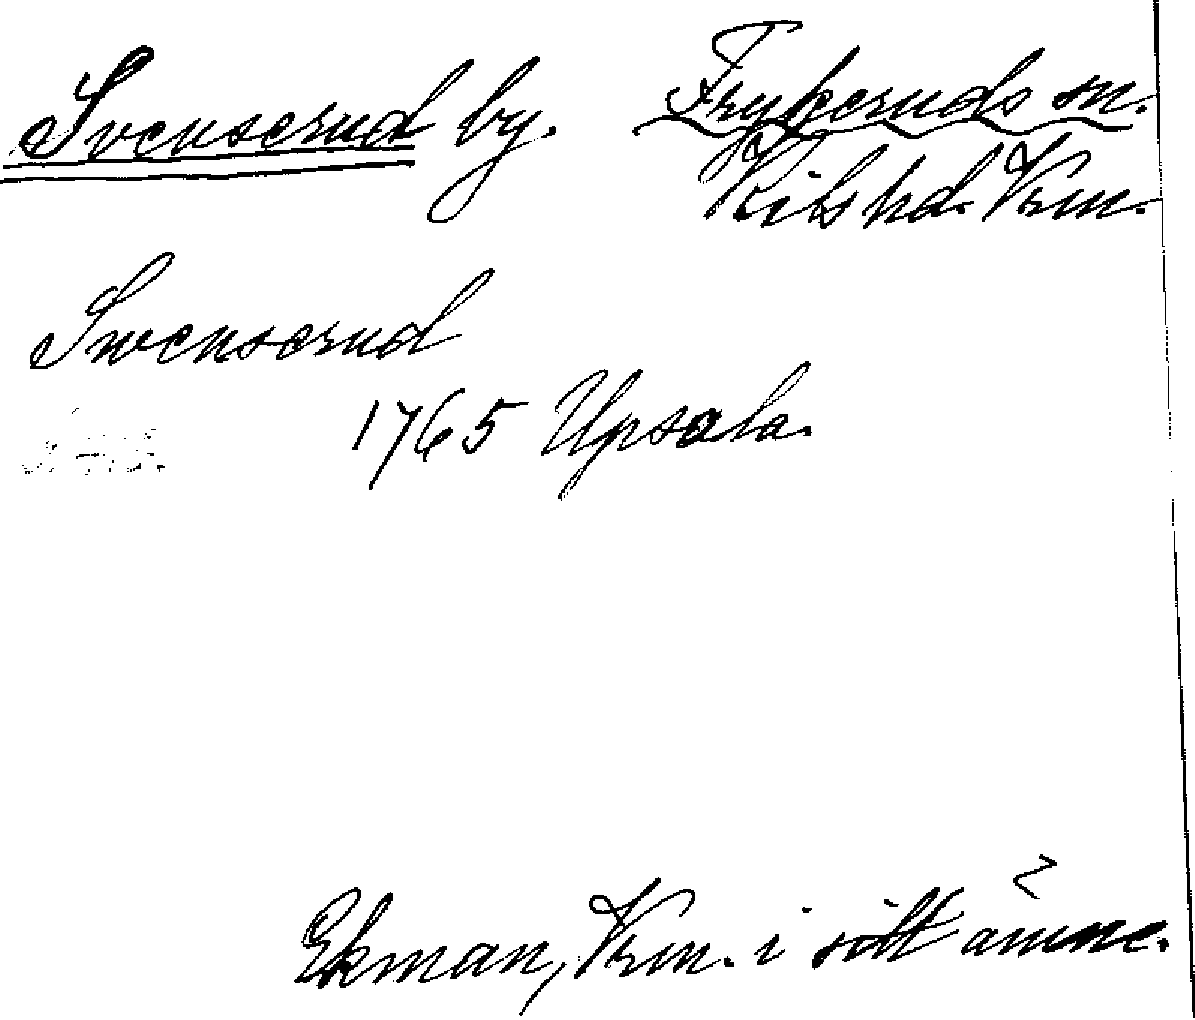 Svenserud by. Frykeruds sn.
Kils hd. Vrm.
Swenserud
1765 Upsala.
Ekman, Vrm. i sitt ämne.